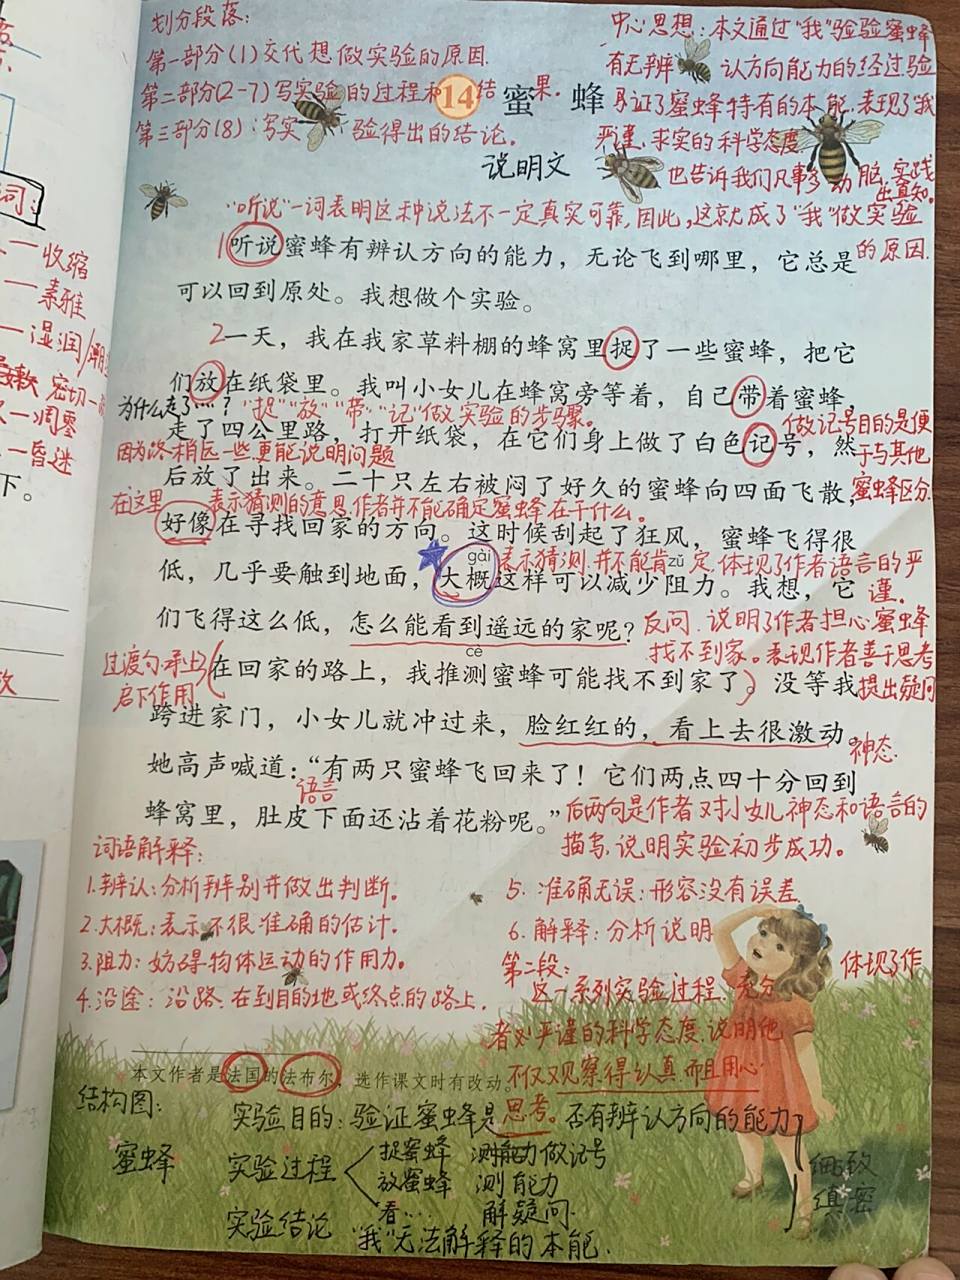 划分段落:
第一部分(1)交代想做实验的原因.
第二部分(2-7)写实验的过程和结果.
第三部分(8):写实验得出的结论.
中心思想:本文通过"我"验验蜜蜂
有无辨认方向能力的经过验
证了蜜蜂特有的本能.表现了我
严谨、求实的科学态度.
也告诉我们凡事多动脑,实践
出真知。
14 蜜蜂
说明文
"听说"一词表明这种说法不一定真实可靠,因此,这就成了"我"做实验
的原因.
1听说蜜蜂有辨认方向的能力,无论飞到哪里,它总是
可以回到原处。我想做个实验。
2一天,我在我家草料棚的蜂窝里捉了一些蜜蜂,把它
们放在纸袋里。我叫小女儿在蜂窝旁等着,自己带着蜜蜂,
为什么走了……?
"捉""放""带""记"做实验的步骤。
走了四公里路,打开纸袋,在它们身上做了白色记号,然
做记号目的是便
于与其他
蜜蜂区分.
因为路稍远一些,更能说明问题
后放了出来。二十只左右被闷了好久的蜜蜂向四面飞散,
在这里 表示猜测的意思.作者并不能确定蜜蜂在干什么。
好像在寻找回家的方向。这时候刮起了狂风,蜜蜂飞得很
gài zǔ
表示猜测.并不能肯定.体现了作者语言的严
谨.
低,几乎要触到地面,大概这样可以减少阻力。我想,它
们飞得这么低,怎么能看到遥远的家呢?
反问.说明了作者担心蜜蜂
找不到家。表现作者善于思考
提出疑问
cè
过渡句:承上
启下作用
在回家的路上,我推测蜜蜂可能找不到家了。没等我
跨进家门,小女儿就冲过来,脸红红的,看上去很激动。
神态.
她高声喊道:"有两只蜜蜂飞回来了!它们两点四十分回到
语言
蜂窝里,肚皮下面还沾着花粉呢。"
后两句是作者对小女儿神态和语言的
描写,说明实验初步成功。
词语解释:
1.辨认:分析辨别并做出判断。
2.大概:表示不很准确的估计.
3.阻力:妨碍物体运动的作用力。
4.沿途:沿路.在到目的地或终点的路上.
5.准确无误:形容没有误差.
6.解释:分析说明
第二段:
这一系列实验过程.充分体现了作
者对严谨的科学态度.说明他
不仅观察得认真而且用心
思考。
本文作者是法国的法布尔,选作课文时有改动。
结构图:
实验目的:验证蜜蜂是否有辨认方向的能力
蜜蜂
实验过程
捉蜜蜂 做记号
放蜜蜂 测能力
看… 解疑问.
实验结论 "我"无法解释的本能.
细致
缜密
词:
收缩
素雅
湿润
密切
凋零
昏迷
下。